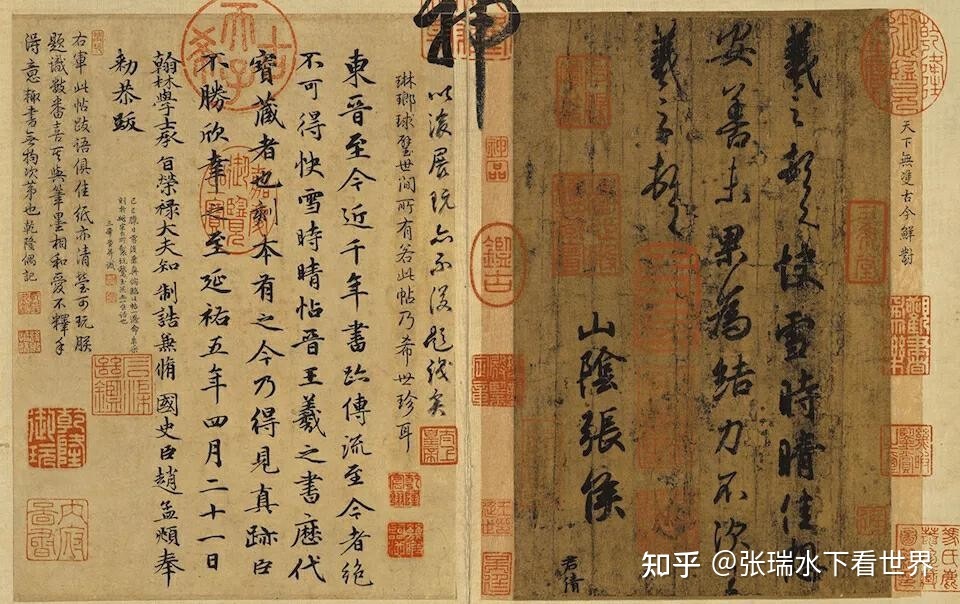 天下無雙古今鮮對
羲之頓首快雪時晴佳想
安善未果為結力不次王
羲之頓首
山陰張侯
君倩
神
神品
鑑古
以後展玩亦不復題識矣
琳瑯球璧世間所有若此帖乃希世珍耳
東晉至今近千年書跡傳流至今者絕
不可得快雪時晴帖晉王羲之書歷代
寶藏者也刻本有之今乃得見真跡臣
不勝欣幸之至延祐五年四月二十一日
翰林學士承旨榮祿大夫知制誥兼脩國史臣趙孟頫奉
勅恭跋
右軍此帖跋語俱佳紙亦清瑩可玩朕
題識數番喜其與筆墨相和愛不釋手
得意輒書無拘次第也乾隆偶記
乾隆御玩
知乎 @张瑞水下看世界